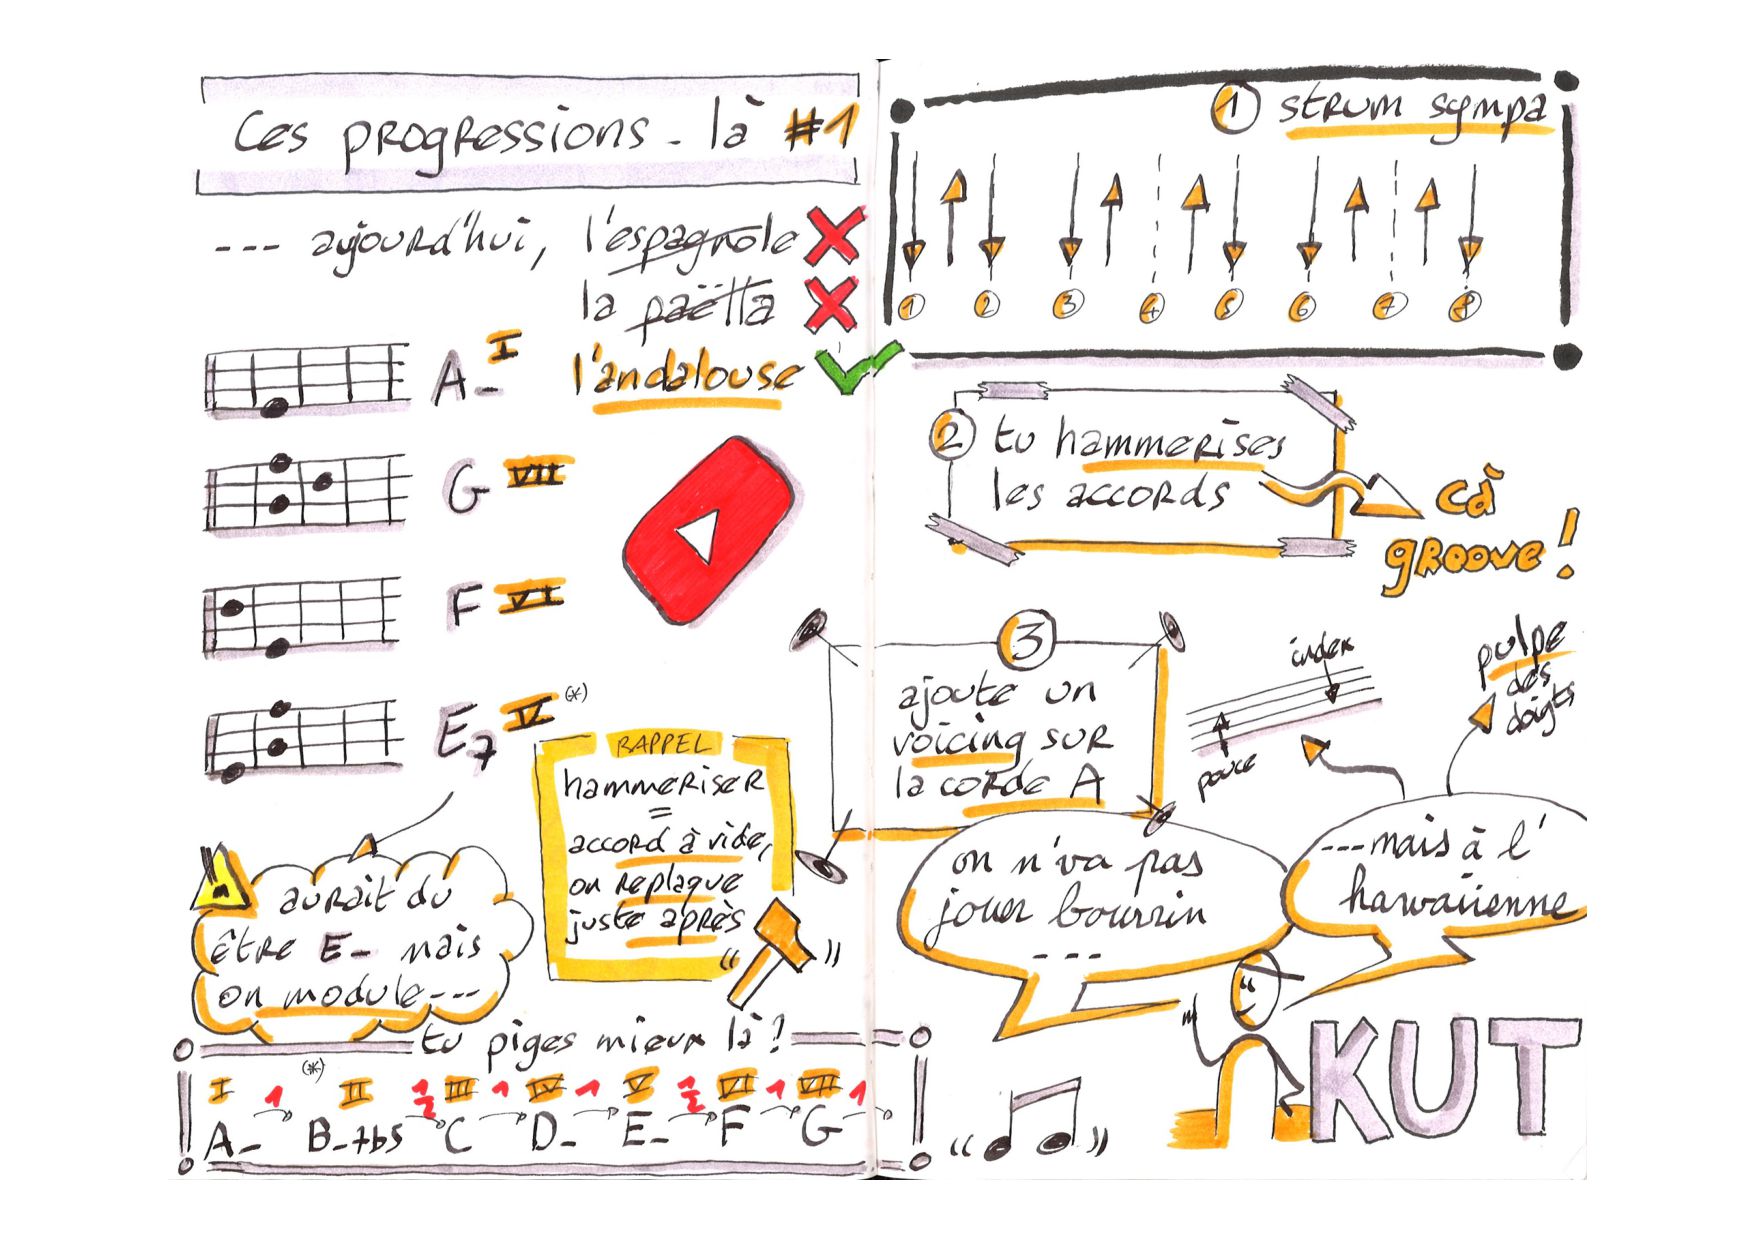 Ces progressions-là #1
--- aujourd'hui, l'espagnole
la paëlla
l'andalouse
A- I
G VII
F VI
E7 IV (*)
RAPPEL
hammeriser
=
accord à vide,
on replaque
juste après
aurait du
être E- mais
on module---
tu piges mieux là ?
(*)
I 1 II 1/2 III 1 IV 1 V 1/2 VI 1 VII 1
A- B-7b5 C D- E- F G
1 strum sympa
1 2 3 4 5 6 7 8
2 tu hammerises
les accords
cà
groove !
3
ajoute un
voicing sur
la corde A
index
pouce
pulpe
des
doigts
on n'va pas
jouer bourrin
---
---mais à l'
hawaiienne
KUT